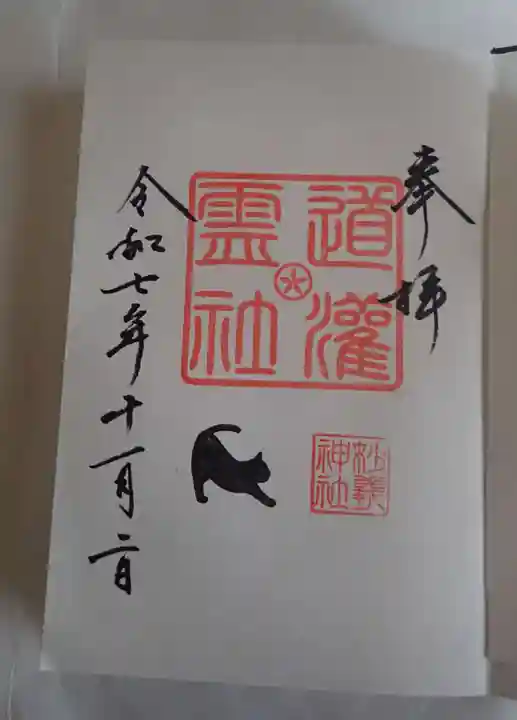 奉拝
道灌
霊社
妙義
神社
令和七年十一月二日